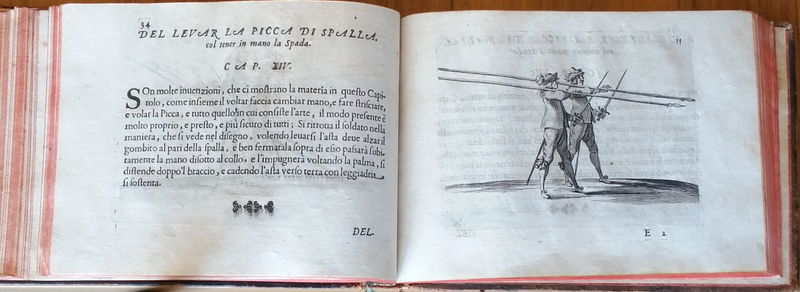 34
DEL LEVAR LA PICCA DI SPALLA.
col tener in mano la Spada.
CAP. XIV.
SOn molte inuenzioni, che ci mostrano la materia in questo Capi-
tolo, come insieme il voltar faccia cambiar mano, e fare strisciate,
e volar la Picca, e tutto quello in cui consiste l'arte, il modo presente è
molto proprio, e presto, e più sicuro di tutti; Si ritroua il soldato nella
maniera, che si vede nel disegno, volendo leuarsi l'asta deue alzar il
gombito al pari della spalla, e ben fermatala sopra di esso passarà subi-
tamente la mano disotto al collo, e l'impugnerà voltando la palma, si
distende doppo'l braccio, e cadendo l'asta verso terra con leggiadria
si sostenta.
DEL
11
E 2